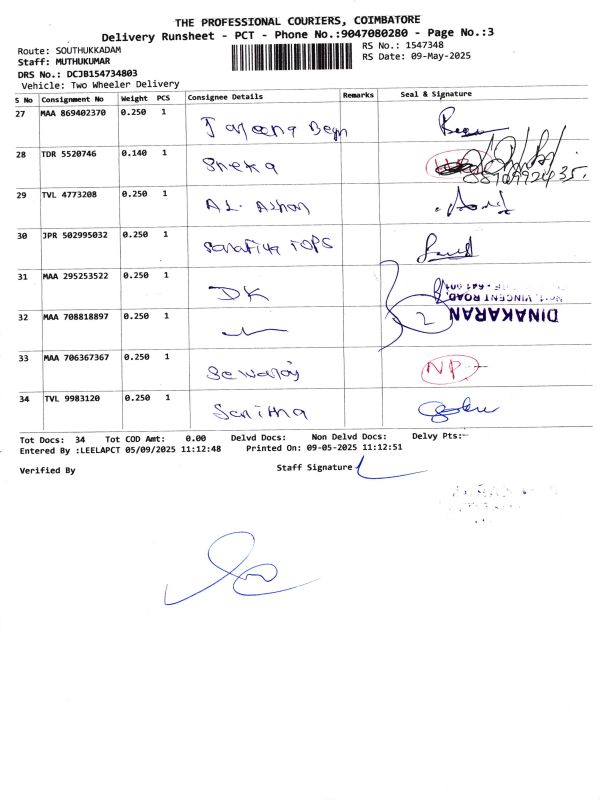 THE PROFESSIONAL COURIERS, COIMBATORE
Delivery Runsheet - PCT - Phone No.:9047080280 - Page No.:3
Route: SOUTHUKKADAM
RS No.: 1547348
Staff: MUTHUKUMAR
RS Date: 09-May-2025
DRS No.: DCJB154734803
Vehicle: Two Wheeler Delivery
S No Consignment No Weight PCS Consignee Details Remarks Seal & Signature
27 MAA 869402370 0.250 1
28 TDR 5520746 0.140 1 Sneka
29 TVL 4773208 0.250 1 AL.
30 JPR 502995032 0.250 1 TOPS
31 MAA 295253522 0.250 1 DK
No:1, VINCENT ROAD,
32 MAA 708818897 0.250 1 2 DINAKARAN
33 MAA 706367367 0.250 1 NP
34 TVL 9983120 0.250 1 Saritha
Tot Docs: 34 Tot COD Amt: 0.00 Delvd Docs: Non Delvd Docs: Delvy Pts:-
Entered By :LEELAPCT 05/09/2025 11:12:48 Printed On: 09-05-2025 11:12:51
Verified By Staff Signature